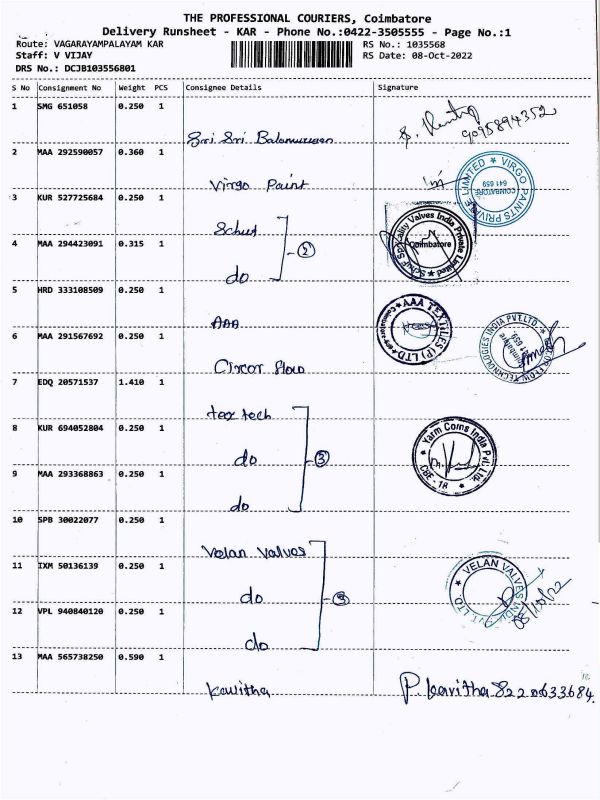 THE PROFESSIONAL COURIERS, Coimbatore
Delivery Runsheet - KAR - Phone No.:0422-3505555 - Page No.:1
Route: VAGARAYAMPALAYAM KAR
Staff: V VIJAY
DRS No.: DCJB103556801
RS No.: 1035568
RS Date: 08-Oct-2022
S No Consignment No Weight PCS Consignee Details Signature
1 SMG 651058 0.250 1
Sri Sri Balamurugan
9095894352
2 MAA 292590057 0.360 1
Virgo Paint
VIRGO PAINTS PRIVATE LIMITED ★
COIMBATORE
641 659
3 KUR 527725684 0.250 1
Schuf
Schuf Speciality Valves India Private Limited ★
Coimbatore
4 MAA 294423091 0.315 1
do
2
5 HRD 333108509 0.250 1
AAA
★ AAA TEXTILES (P) LTD ★ Coimbatore
6 MAA 291567692 0.250 1
Circor flow
FLOW TECHNOLOGIES INDIA PVT.LTD.
Coimbatore
641 659
7 EDQ 20571537 1.410 1
tex tech
8 KUR 694052804 0.250 1
do
3
★ Yarm Corns India Pvt. Ltd. ★
CBE - 18
9 MAA 293368863 0.250 1
do
10 SPB 30022077 0.250 1
Velan Valves
11 IXM 50136139 0.250 1
do
3
★ VELAN VALVES INDIA PVT. LTD.
08/10/22
12 VPL 940840120 0.250 1
do
13 MAA 565738250 0.590 1
Kavitha
P Kavitha 8220633684